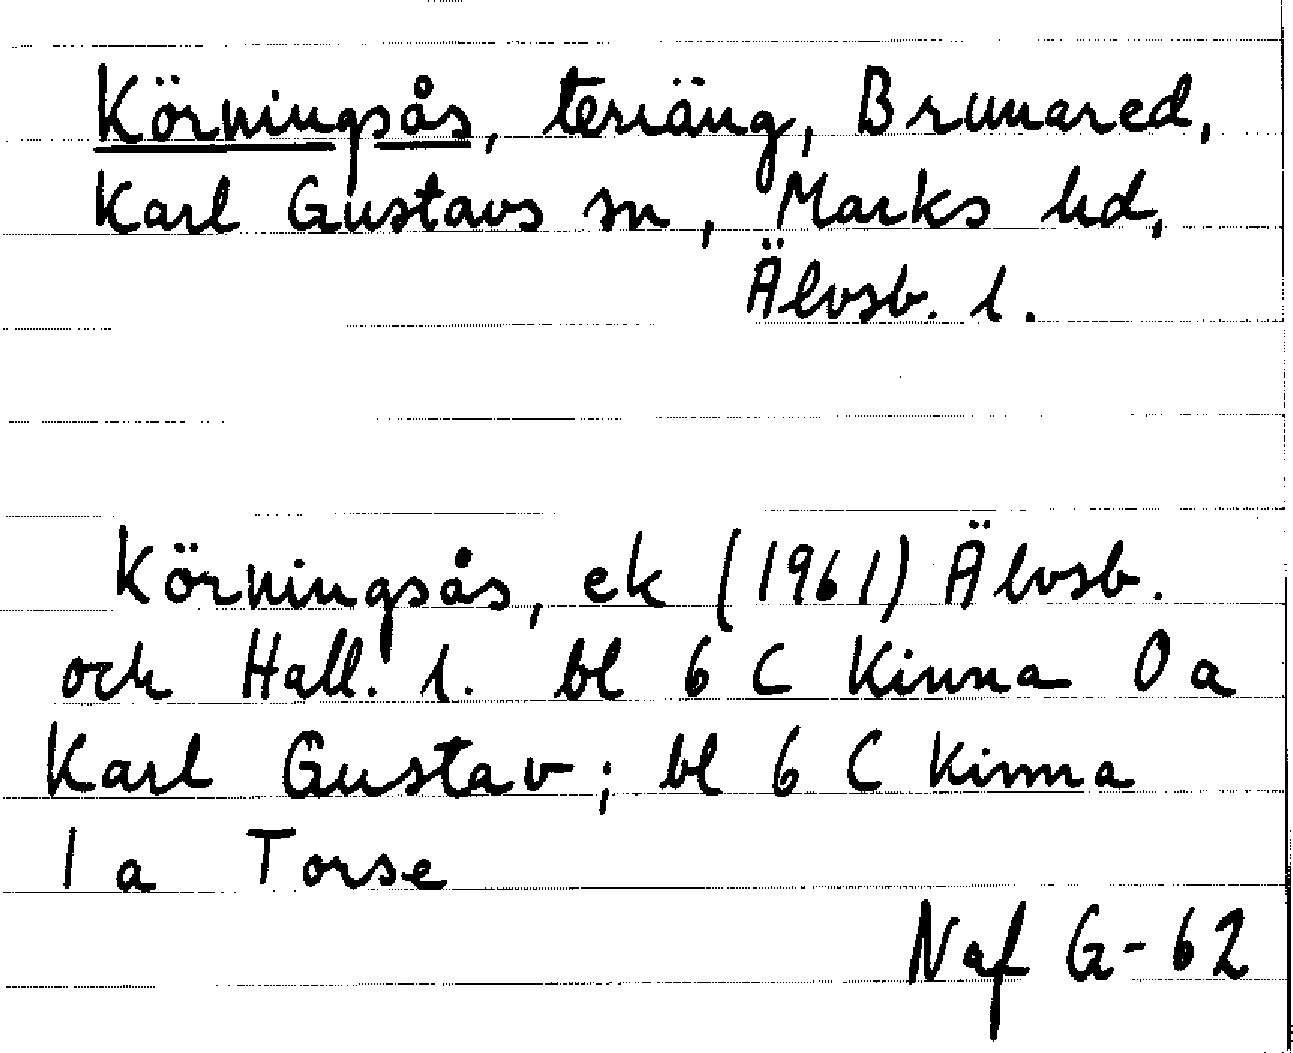 Körningsås, terräng, Brunared,
Karl Gustavs sn, Marks hd,
Älvsb. l.
Körningsås, ek (1961) Älvsb.
och Hall. l. bl 6 C Kinna 0 a
Karl Gustav; bl 6 C Kinna
1 a Torse
Naf G-62